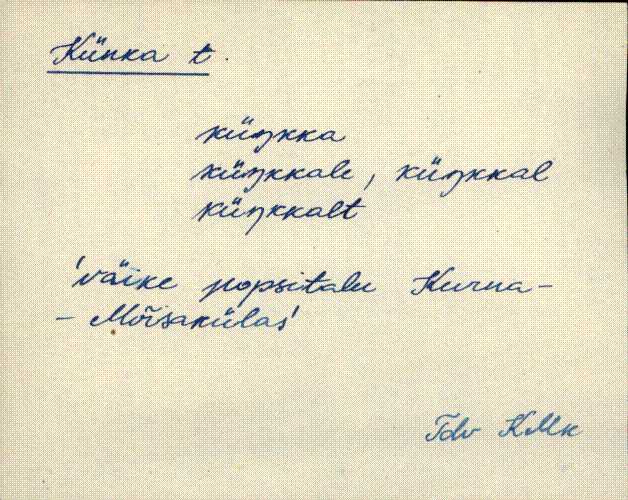 Künka t.
küŋkka
küŋkkale, küŋkkal
küŋkkalt
'väike popsitalu Kurna-
- Mõisakülas'
Tdv KMk